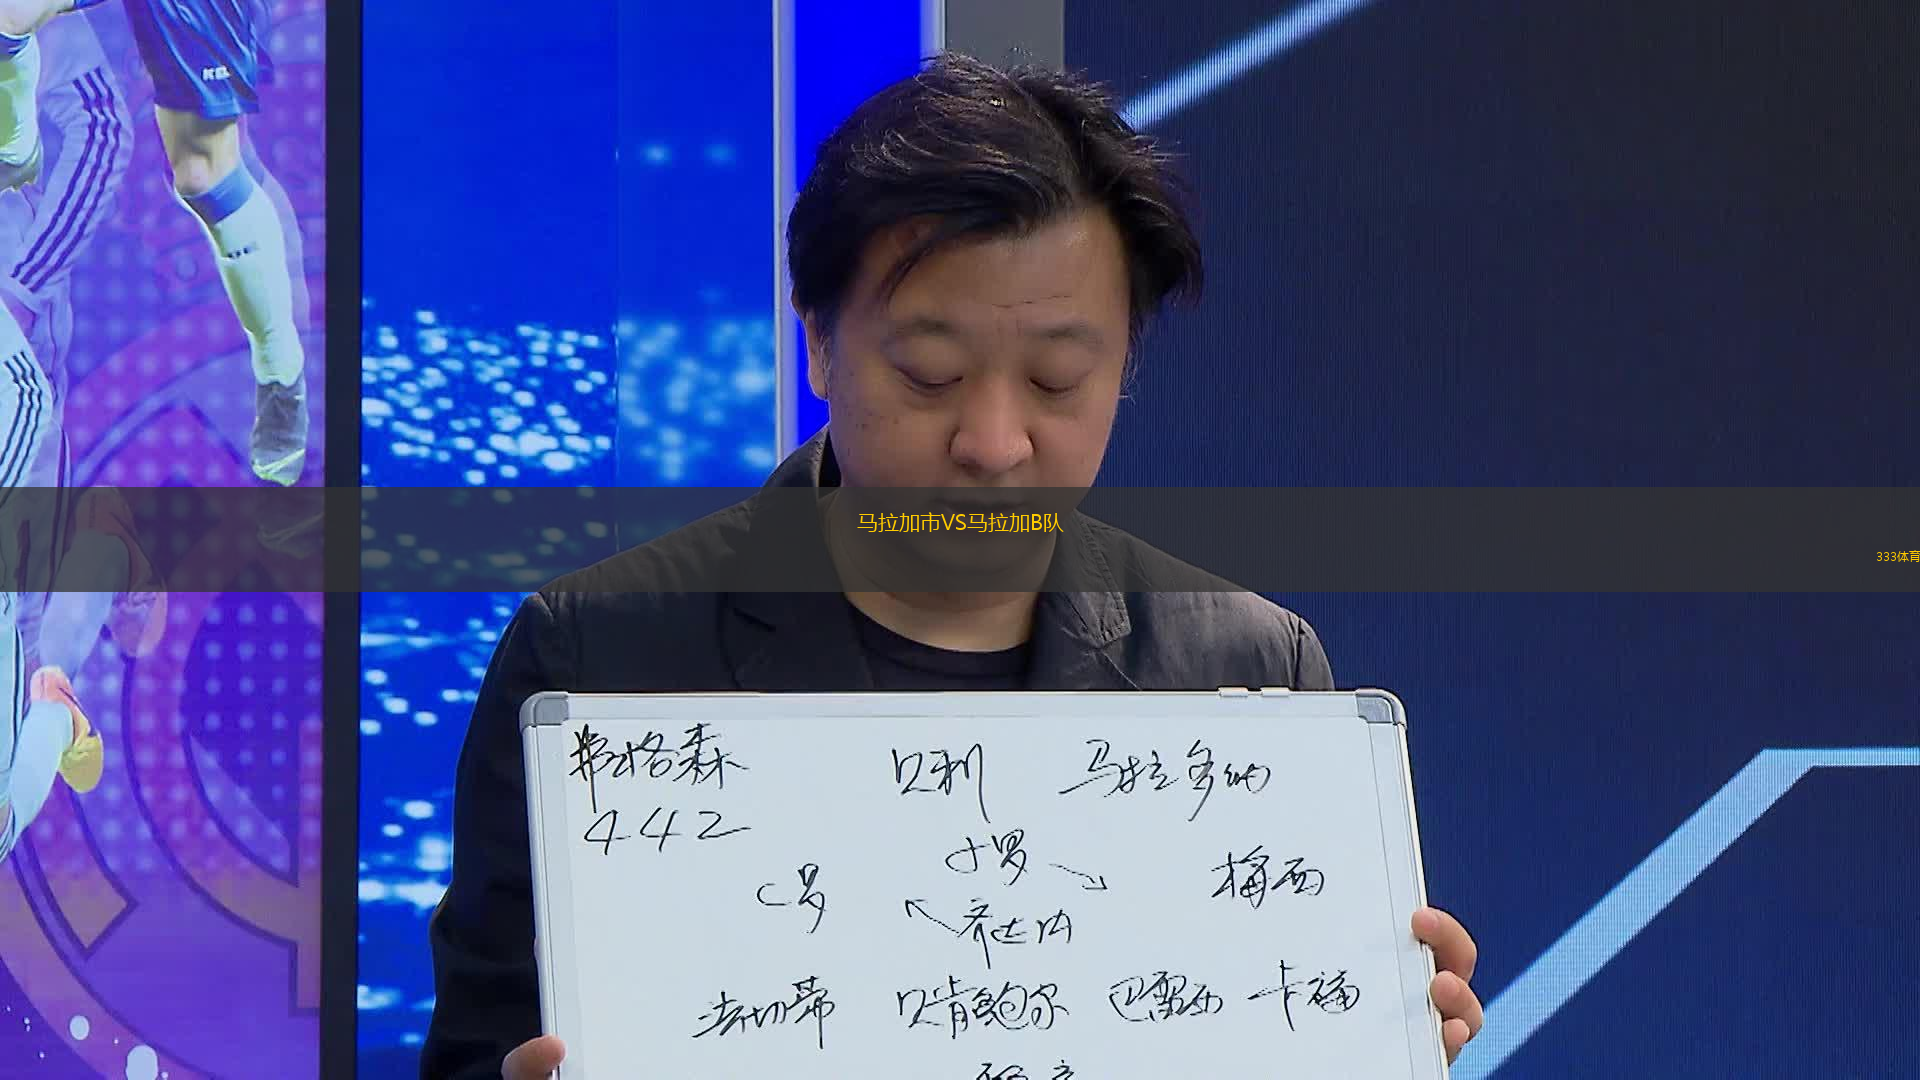 马拉加市VS马拉加B队
333体育
弗格森 贝利 马拉多纳
442
小罗
C罗 梅西
齐达内
法切蒂 贝肯鲍尔 巴雷西 卡福